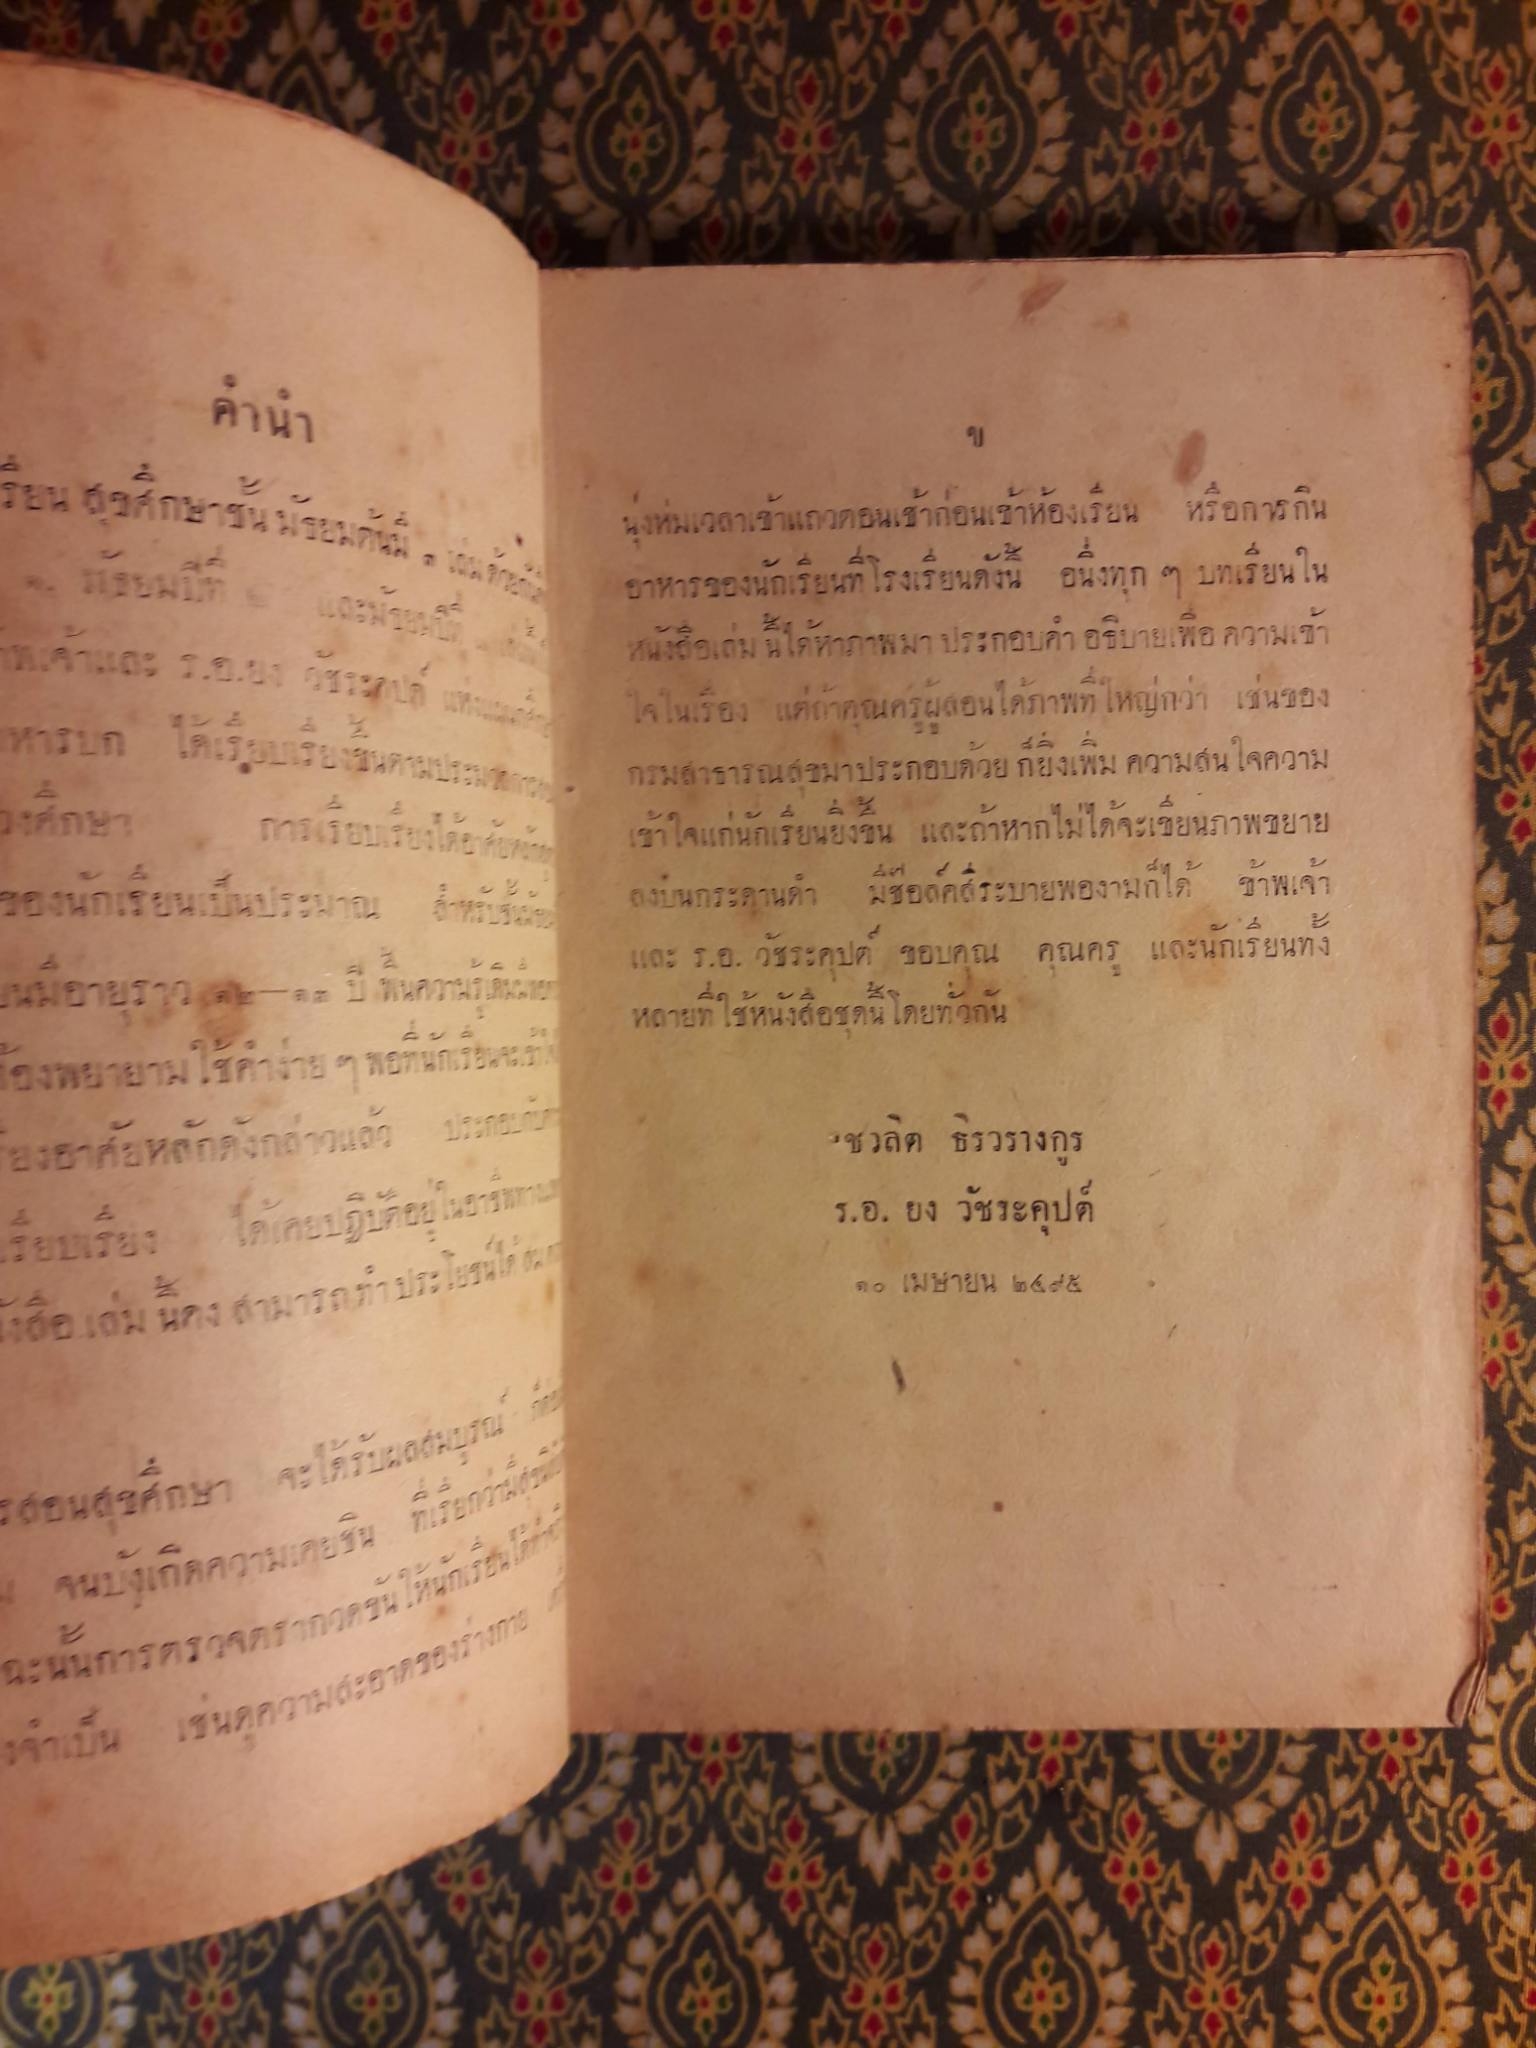 คำนำ
เรียน สุขศึกษาชั้น มัธยมต้นมี ๓ เล่ม ด้วยกัน
๑. มัธยมปีที่ ๒ และมัธยมปีที่
พเจ้าและ ร.อ.ยง วัชระคุปต์
หารบก ได้เรียบเรียงขึ้นตามประมวลการ
วงศึกษา การเรียบเรียงได้อาศัย
ของนักเรียนเป็นประมาณ สำหรับชั้นมัธย
นมีอายุราว ๑๒—๑๓ ปี พื้นความรู้เดิม
ต้องพยายามใช้คำง่าย ๆ พอที่นักเรียนจะเข้าใจ
รียงอาศัยหลักดังกล่าวแล้ว ประกอบกับ
เรียบเรียง ได้เคยปฏิบัติอยู่ในอาชีพทาง
ังสือ เล่ม นี้คง สามารถ ทำ ประโยชน์ได้ สม
รสอนสุขศึกษา จะได้รับผลสมบูรณ์ ก็ต่อ
จนบังเกิดความเคยชิน ที่เรียกว่ามีสุขนิสัย
ฉะนั้นการตรวจตรากวดขันให้นักเรียนได้ทำ
งจำเป็น เช่นดูความสะอาดของร่างกาย
ข
นุ่งห่มเวลาเข้าแถวตอนเช้าก่อนเข้าห้องเรียน หรือการกิน
อาหารของนักเรียนที่โรงเรียนดังนี้ อนึ่งทุก ๆ บทเรียนใน
หนังสือเล่ม นี้ได้หาภาพมา ประกอบคำ อธิบายเพื่อ ความเข้า
ใจในเรื่อง แต่ถ้าคุณครูผู้สอนได้ภาพที่ใหญ่กว่า เช่นของ
กรมสาธารณสุขมาประกอบด้วย ก็ยิ่งเพิ่ม ความสนใจความ
เข้าใจแก่นักเรียนยิ่งขึ้น และถ้าหากไม่ได้จะเขียนภาพขยาย
ลงบนกระดานดำ มีช๊อล์คสีระบายพองามก็ได้ ข้าพเจ้า
และ ร.อ. วัชระคุปต์ ขอบคุณ คุณครู และนักเรียนทั้ง
หลายที่ใช้หนังสือชุดนี้โดยทั่วกัน
ชวลิต ธิรวรางกูร
ร.อ. ยง วัชระคุปต์
๑๐ เมษายน ๒๔๙๕